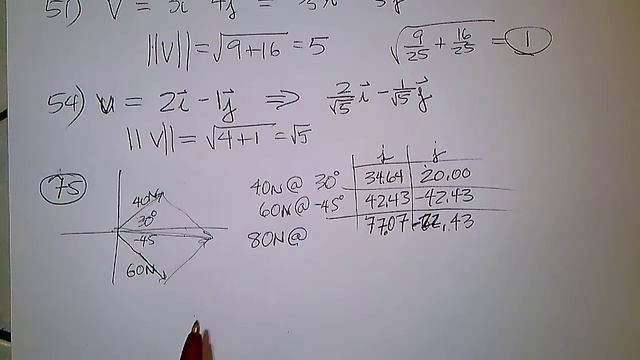 51) V = 3i 4j =
||V|| = √9+16 = 5 √9/25 + 16/25 = 1
54) u = 2i - 1j ⇒ 2/√5 i - 1/√5 j
||V|| = √4+1 = √5
75
40N
30°
-45
60N
i j
40N@ 30° 34.64 20.00
60N@ -45° 42.43 -42.43
80N@ 77.07 -22.43